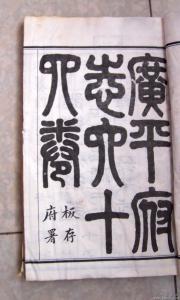 廣平府
志六十
四卷
板存
府署